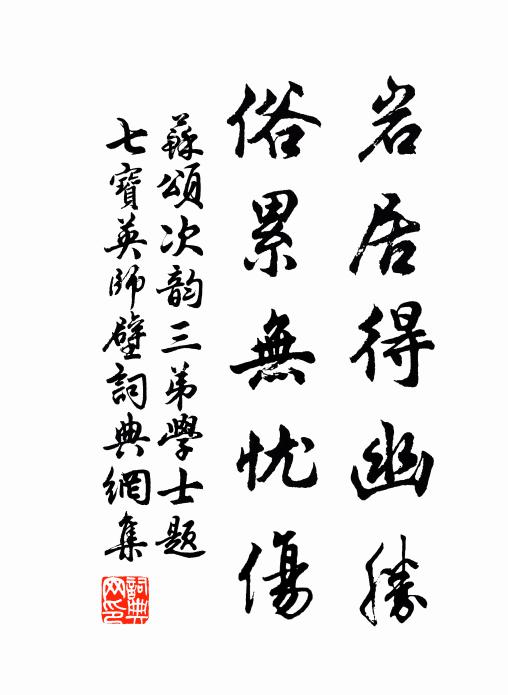 岩居得幽勝
俗累無忧傷
蘇頌次韵三弟學士题
七寶英師壁詞典網集
詞典网印